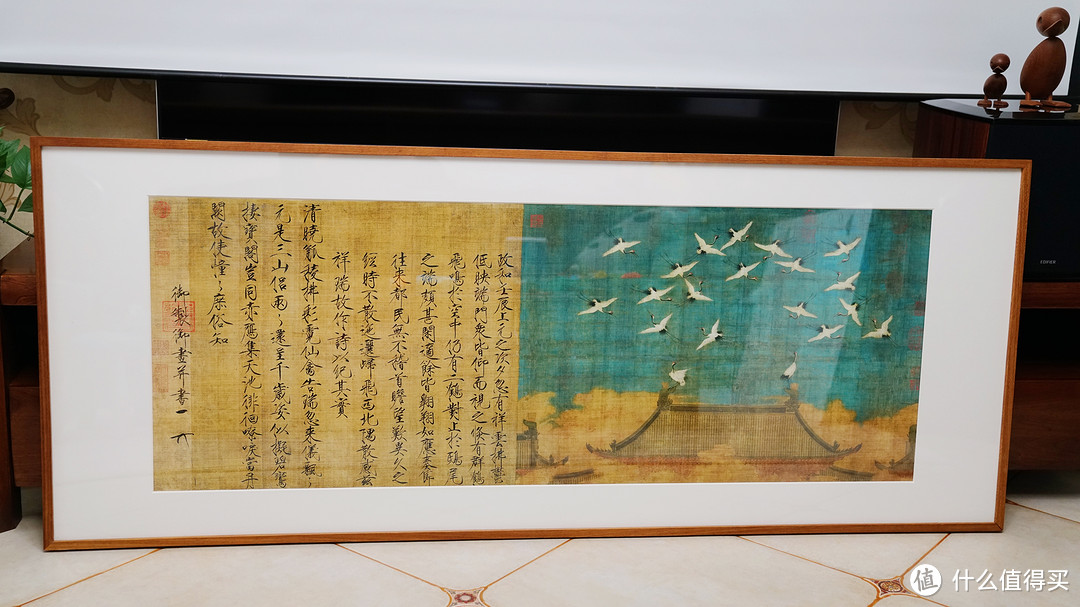 政和壬辰上元之次夕忽有祥雲拂鬱
低映端門衆皆仰而視之倏有群鶴
飛鳴於空中仍有二鶴對止於鴟尾
之端頗甚閑適餘皆翱翔如應奏節
往來都民無不稽首瞻望歎異久之
經時不散迤邐歸飛西北隅散感茲
祥瑞故作詩以紀其實
清曉觚稜拂彩霓仙禽告瑞忽來儀飄々
元是三山侶兩々還呈千歲姿似擬碧鸞
棲寶閣豈同赤鴈集天池徘徊嘹唳當丹
闕故使憧々庶俗知
御製御畫并書
EDIFIER
值 什么值得买